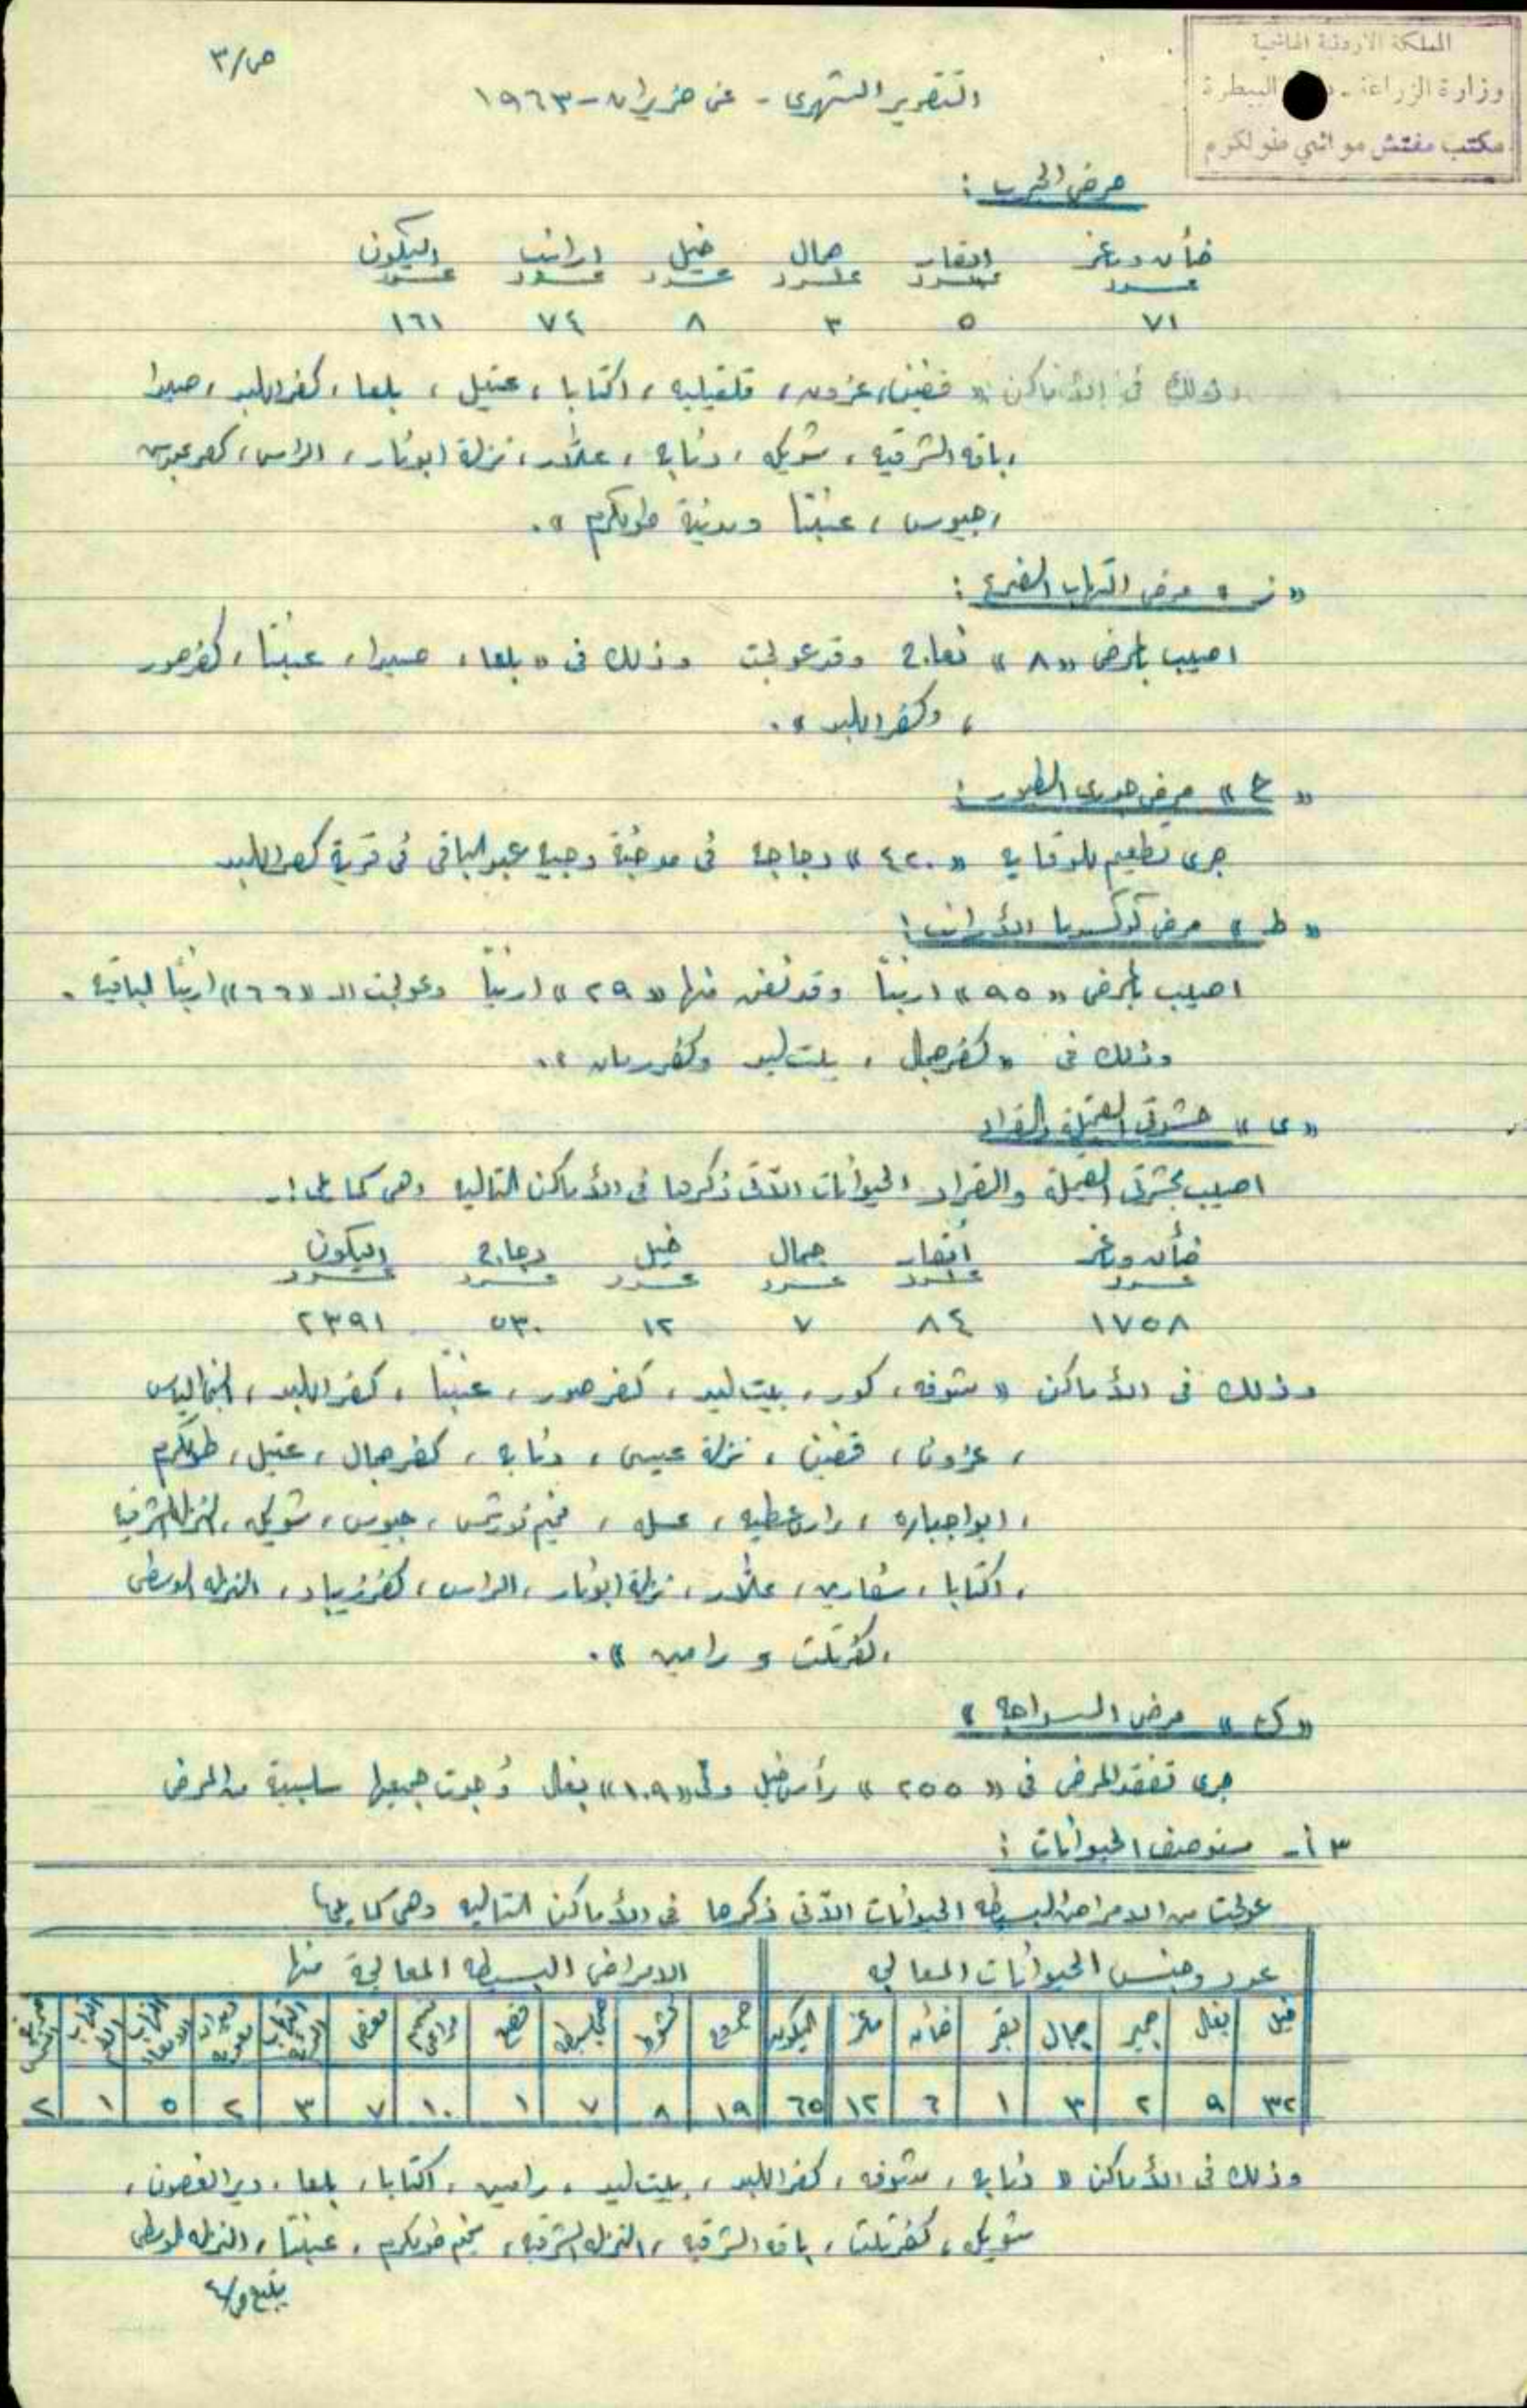 ص/٣
المملكة الاردنية الهاشمية
وزارة الزراعة - البيطرة
مكتب مفتش مواشي طولكرم
التقرير الشهري - عن حزيران - ١٩٦٣
مرض الجرب :
ضأن وماعز ابقار جمال خيل ارانب اليكون
عدد عدد عدد عدد عدد عدد
٧١ ٥ ٣ ٨ ٧٤ ١٦١
وذلك في الأماكن « قفين، عزون، قلقيليه، اكتابا، عتيل، بلعا، كفر اللبد، صيدا
، باقه الشرقيه، شويكه، ذنابه، علار، نزلة ابو نار، الراس، كفر عبوس
، جيوس، عنبتا ومدينة طولكرم ».
« ز » مرض التهاب الضرع :
اصيب بالمرض « ٨ » نعاج وقد عولجت وذلك في « بلعا، صيدا، عنبتا، كفر صور
، وكفر اللبد ».
« ح » مرض جدري الطيور :
جرى تطعيم للوقايه « ٤٢٠ » دجاجه في مدجنة وجيه عبد الباقي في قرية كفر اللبد
« ط » مرض كوكسيديا الأرانب :
اصيب بالمرض « ٩٥ » ارنباً وقد نفق منها « ٢٩ » ارنباً وعولجت الـ « ٦٦ » ارنبًا الباقيه .
وذلك في « كفر جمال، بيت ليد وكفر رمان ».
« ى » حشرتي القملة والقراد
اصيب بحشرتي القملة والقراد الحيوانات الآتي ذكرها في الأماكن التاليه وهي كما يلي :-
ضأن وماعز أبقار جمال خيل دجاج اليكون
عدد عدد عدد عدد عدد عدد
١٧٥٨ ٨٤ ٧ ١٢ ٥٣٠ ٢٣٩١
وذلك في الأماكن « شوفه، كور، بيت ليد، كفر صور، عنبتا، كفر اللبد، النبي الياس
، عزون، قفين، نزلة عيسى، ذنابه، كفر جمال، عتيل، طولكرم
، ابو اجباره، راس عطيه، عسله، مخيم نور شمس، جيوس، شويكه، النزله الشرقيه
، اكتابا، علار، نزلة ابو نار، الراس، كفر زيباد، النزله الوسطى
، كفر ثلث و رامين ».
« ك » مرض السراجه :
جرى تفقد المرض في « ٢٥٥ » رأس خيل وفي « ١٠٩ » بغال وجدت جميعها سلبية من المرض
٣ أ- مستوصف الحيوانات :
عولجت من الامراض البسيطه الحيوانات الآتي ذكرها في الأماكن التاليه وهي كما يلي :
عدد وجنس الحيوانات المعالجه الامراض البسيطه المعالجة منها
خيل بغال حمير جمال بقر ضأن ماعز اليكون جروح
٣٢ ٩ ٢ ٣ ١ ٦ ١٢ ٦٥ ١٩ ٨ ٧ ١ ١٠ ٧ ٣ ٢ ٥ ١ ٢
وذلك في الأماكن « ذنابه، شوفه، كفر اللبد، بيت ليد، رامين، اكتابا، بلعا، دير الغصون،
شويكه، كفر ثلث، باقه الشرقيه، النزله الشرقيه، مخيم طولكرم، عنبتا، النزله الوسطى
يتبع ص/٤